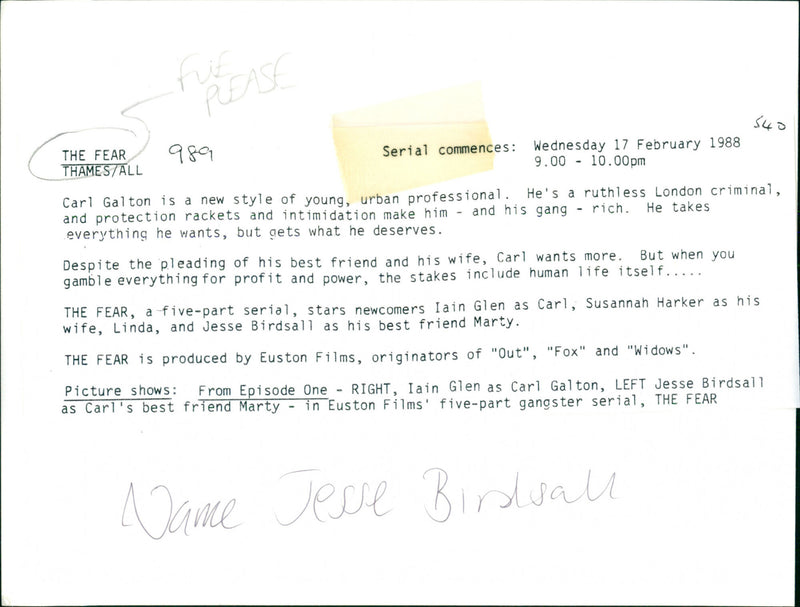 FILE
PLEASE
540
THE FEAR 989 Serial commences: Wednesday 17 February 1988
THAMES/ALL 9.00 - 10.00pm
Carl Galton is a new style of young, urban professional. He's a ruthless London criminal,
and protection rackets and intimidation make him - and his gang - rich. He takes
everything he wants, but gets what he deserves.
Despite the pleading of his best friend and his wife, Carl wants more. But when you
gamble everything for profit and power, the stakes include human life itself.....
THE FEAR, a five-part serial, stars newcomers Iain Glen as Carl, Susannah Harker as his
wife, Linda, and Jesse Birdsall as his best friend Marty.
THE FEAR is produced by Euston Films, originators of "Out", "Fox" and "Widows".
Picture shows: From Episode One - RIGHT, Iain Glen as Carl Galton, LEFT Jesse Birdsall
as Carl's best friend Marty - in Euston Films' five-part gangster serial, THE FEAR
Name Jesse Birdsall